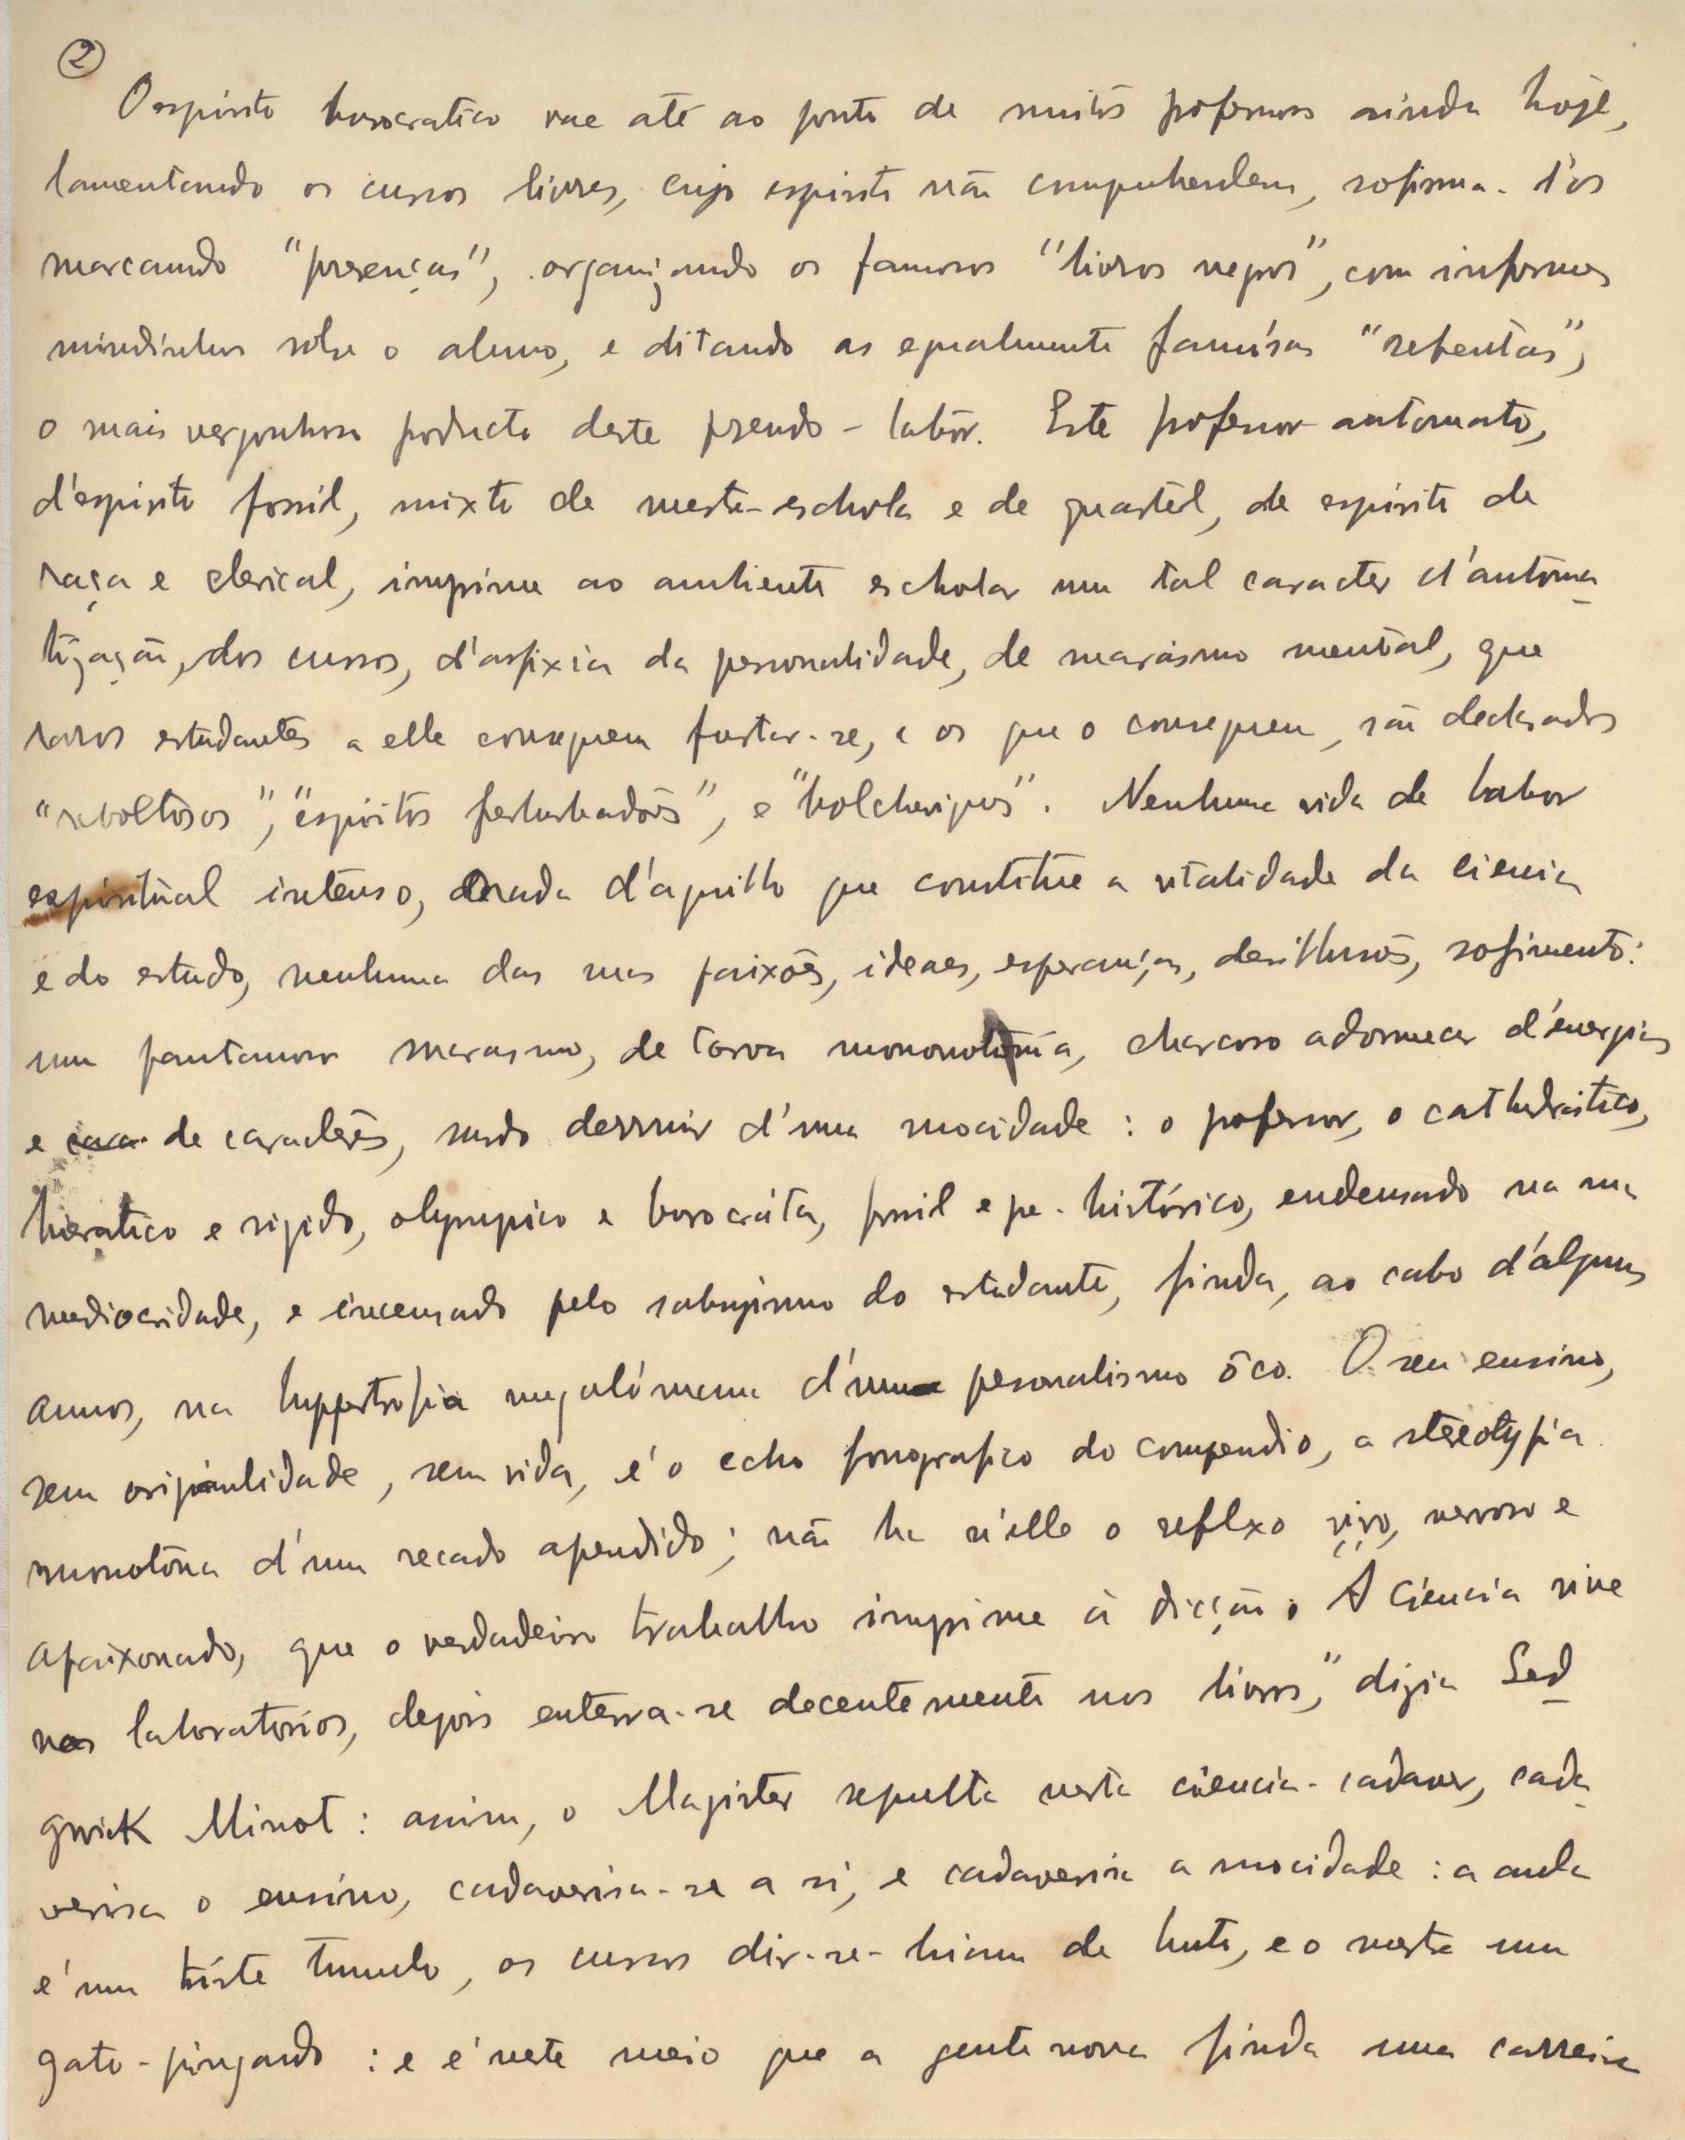 2
O espirito burocratico vae até ao ponto de muitos professores ainda hoje,
lamentando os cursos livres, cujo espirito não comprehendem, sofisma-l'os
marcando "presenças", organizando os famosos "livros negros", com informes
sobre o aluno, e ditando as egualmente famósas "sebentas",
o mais vergonhoso producto deste pseudo-labôr. Este professor-automato,
d'espirito fossil, mixto de mestre-eschola e de quartel, de espirito de
raça e clerical, imprime ao ambiente escholar um tal caracter d'automa-
tização, dos cursos, d'asfixia da personalidade, de marásmo mental, que
raros estudantes a elle conseguem furtar-se, e os que o conseguem, são declarados
"revoltosos", "espiritos perturbadôres", e "bolcheviques". Nenhuma vida de labor
espiritual intenso, nada d'aquillo que constitue a vitalidade da ciencia
e do estudo, nenhuma das suas paixões, ideaes, esperanças, desillusões, sofrimento:
um pantanoso marasmo, de torva mononotonia, charcoso adormecer d'energias
e cara- de caractéres, surdo derruir d'uma mocidade: o professor, o cathedrático,
hieratico e rigido, olympico e burocráta, fossil e pre-histórico, endeusado na sua
mediocridade, e incensado pelo sabujismo do estudante, finda, ao cabo d'alguns
annos, na hyppertrofia megalómana d'um personalismo ôco. O seu ensino,
sem originalidade, sem vida, é o echo fonografico do compendio, a stereotypia
monotóna d'um recado aprendido; não ha n'elle o reflxo vivo, nervoso e
apaixonado, que o verdadeiro trabalho imprime á dicção. "A Ciencia vive
nos laboratorios, depois enterra-se decentemente nos livros," dizia Sed-
gwick Minot: assim, o Magister sepulta nesta ciencia-cadaver, cada-
verisa o ensino, cadaverisa-se a si, e cadaverisa a mocidade: a aula
é um triste tumulo, os cursos dir-se-hiam de luto, e o mestre um
gato-pingado: e é neste meio que a gente nova finda uma carreira